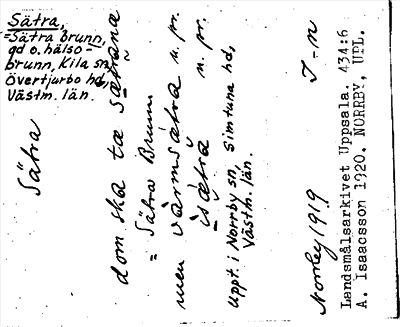 Sätra,
= Sätra Brunn,
gd o. hälso-
brunn, Kila sn,
Övertjurbo hd,
Västm. län.
Sätra
dom ska ta sætrana
= Sätra Brunn
men värmsætra n. pr.
isætra n. pr.
Uppt. i Norrby sn, Simtuna hd,
Västm. län.
Norrby 1919 I-n
Landsmålsarkivet Uppsala. 434:6
A. Isaacsson 1920. NORRBY, UPL.